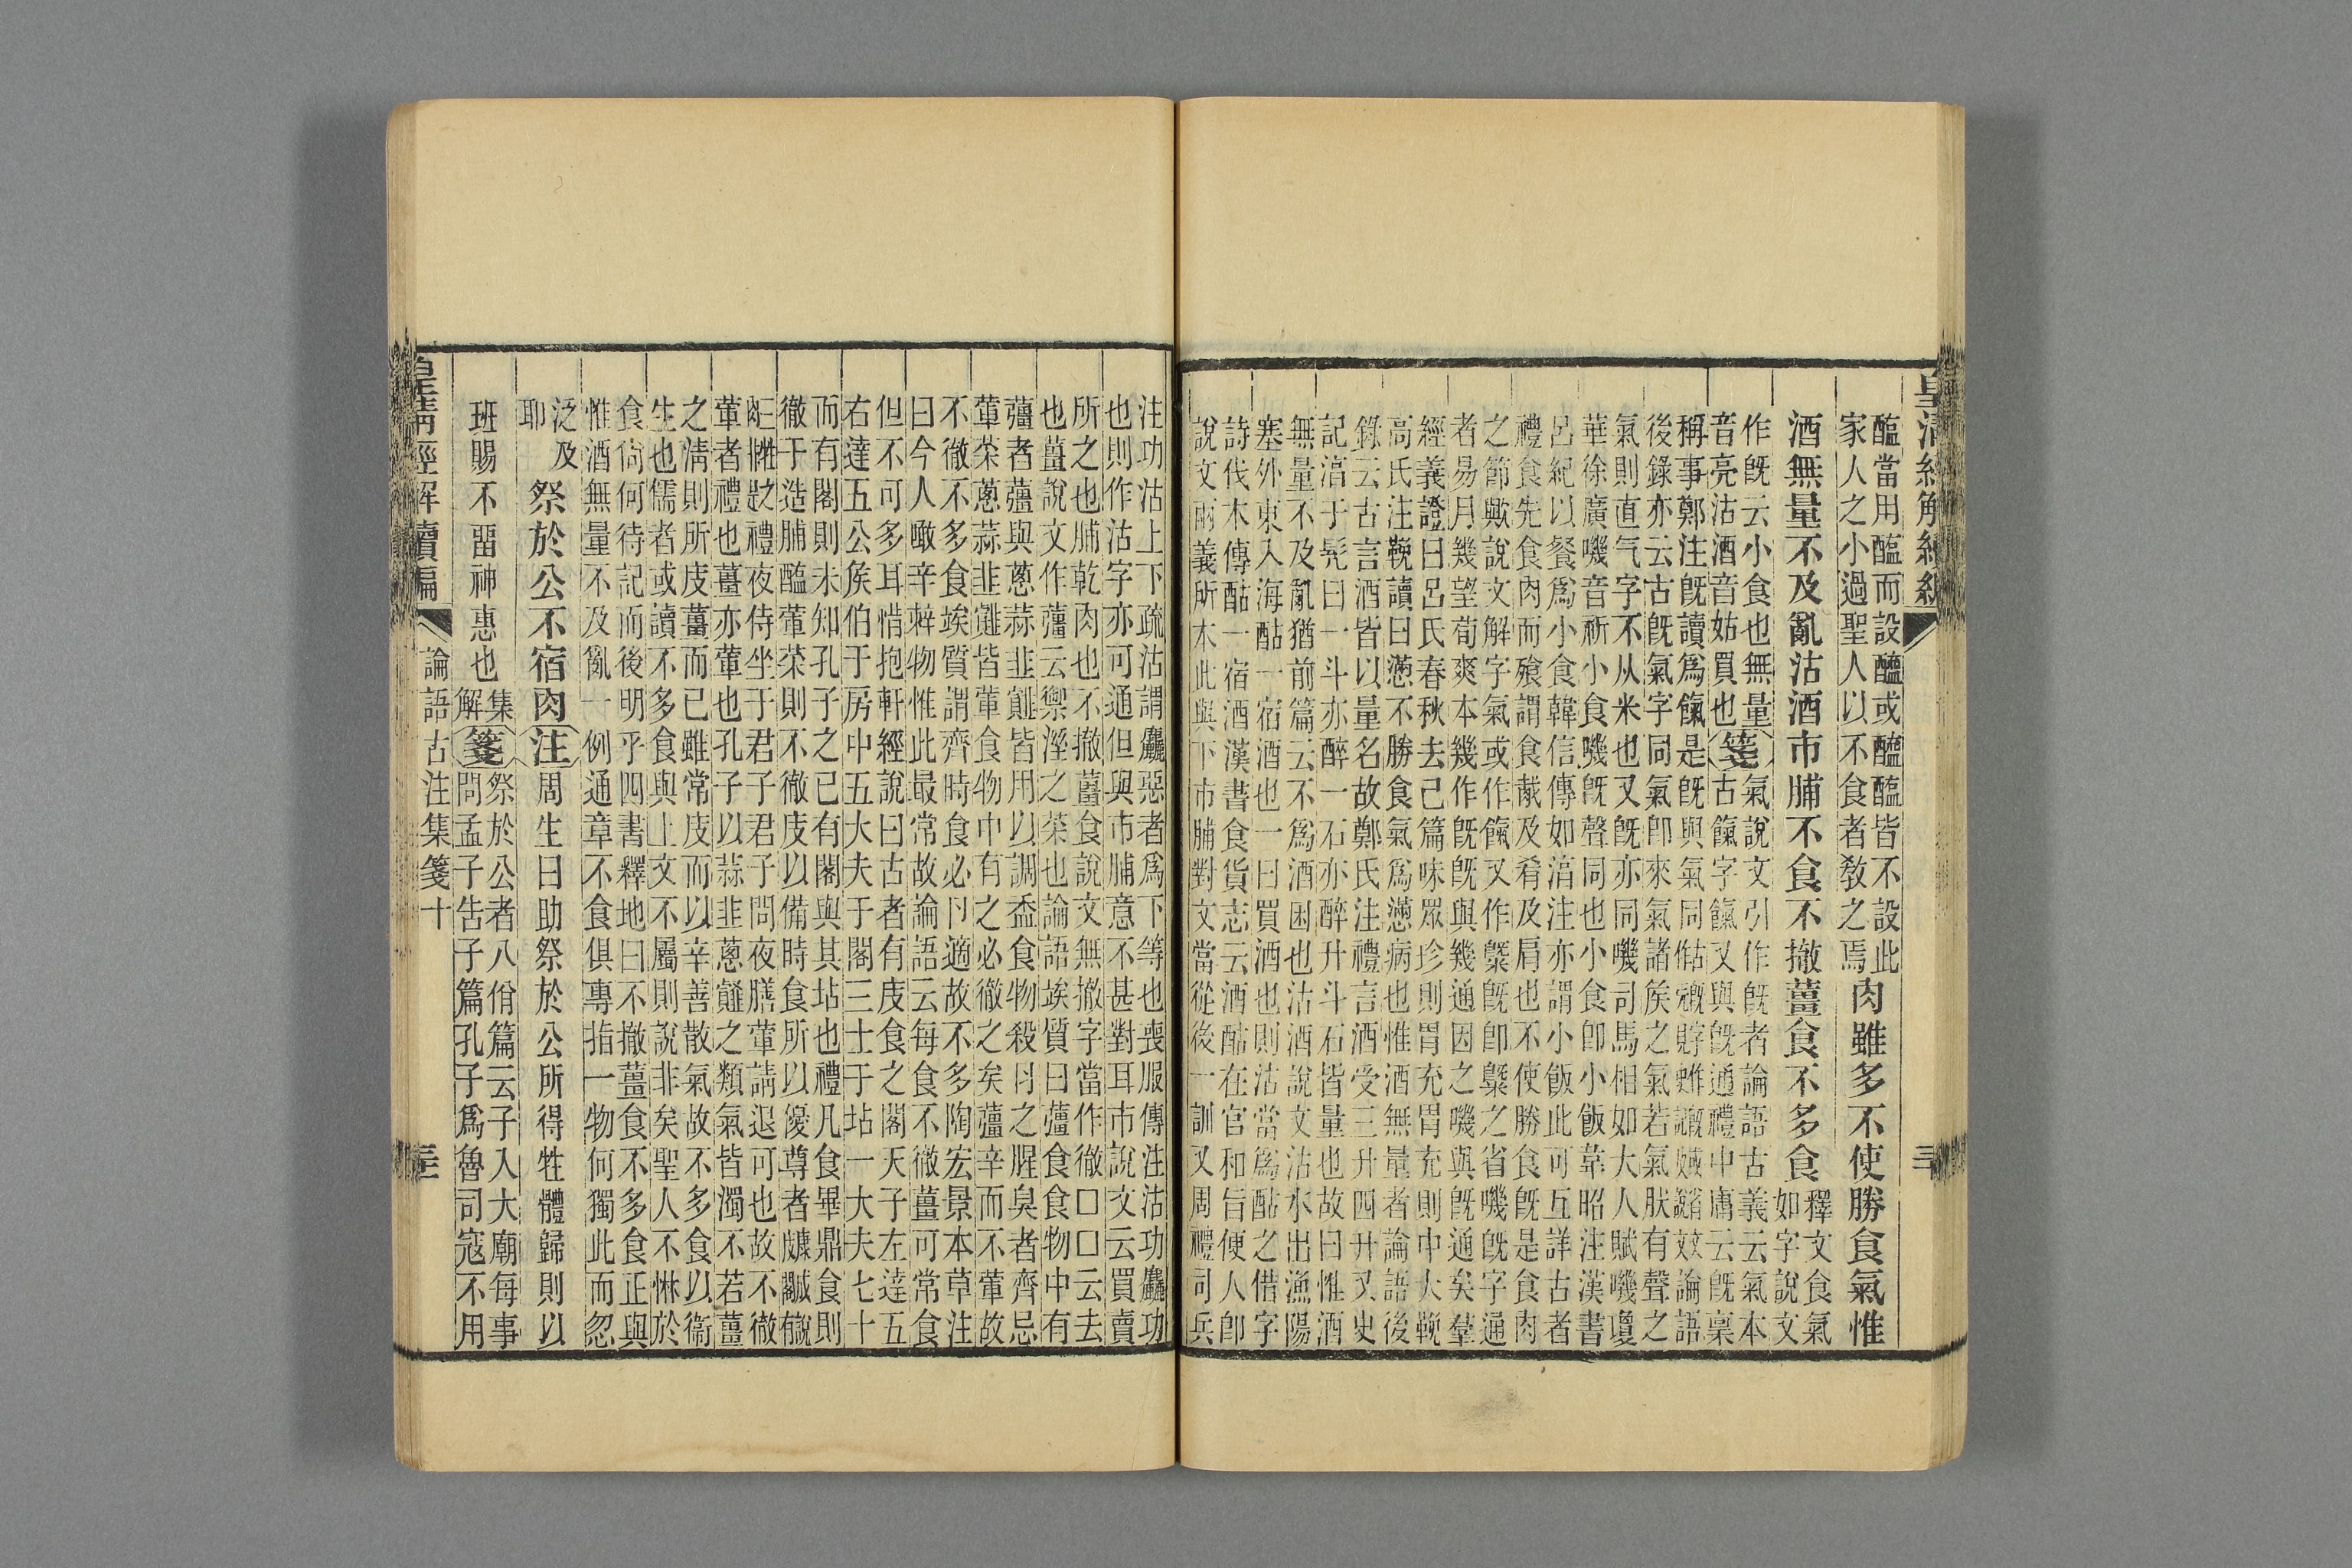 醢當用醢而設醯或醯醢皆不設此
家人之小過聖人以不食者教之焉
肉雖多不使勝食氣惟
酒無量不及亂沽酒市脯不食不撤薑食不多食
釋文食氣
如字說文
作旣云小食也無量
音亮沽酒音姑買也
箋
氣說文引作旣者論語古義云氣本
古餼字餼又與旣通禮中庸云旣稟
稱事鄭注旣讀爲餼是旣與氣同
論語
後錄亦云古旣氣字同氣卽來氣諸矦之氣若氣肰有聲之
氣則直气字不从米也又旣亦同嘰司馬相如大人賦嘰瓊
華徐廣嘰音祈小食嘰旣聲同也小食卽小飯韋昭注漢書
呂紀以餐爲小食韓信傳如淳注亦謂小飯此可互詳古者
禮食先食肉而飱謂食胾及肴及肩也不使勝食旣是食肉
之節歟說文解字氣或作餼又作槩旣卽槩之省嘰旣字通
者易月幾望荀爽本幾作旣旣與幾通因之嘰與旣通矣羣
經義證曰呂氏春秋去己篇味眾珍則胃充胃充則中大鞔
高氏注鞔讀曰懣不勝食氣爲懣病也惟酒無量者論語後
錄云古言酒皆以量名故鄭氏注禮言酒受三升四升又史
記淳于髡曰一斗亦醉一石亦醉升斗石皆量也故曰惟酒
無量不及亂猶前篇云不爲酒困也沽酒說文沽水出漁陽
塞外東入海酤一宿酒也一曰買酒也則沽當爲酤之借字
詩伐木傳酤一宿酒漢書食貨志云酒酤在官和旨便人卽
說文兩義所本此與下市脯對文當從後一訓又周禮司兵
注功沽上下疏沽謂麤惡者爲下等也喪服傳注沽功麤功
也則作沽字亦可通但與市脯意不甚對耳市說文云買賣
所之也脯乾肉也不撤薑食說文無撤字當作徹口口云去
也薑說文作䕬云禦溼之菜也論語竢質曰䕬食食物中有
䕬者䕬與蔥蒜韭䪥皆用以調盉食物殺⺼之腥臭者齊忌
葷菜蔥蒜韭䪥皆葷食物中有之必徹之矣䕬辛而不葷故
不徹不多食竢質謂齊時食必⺼適故不多陶宏景本草注
曰今人噉辛辣物惟此最常故論語云每食不徹薑可常食
但不可多耳惜抱軒經說曰古者有庋食之閣天子左逹五
右逹五公矦伯于房中五大夫于閣三士于坫一大夫七十
而有閣則未知孔子之已有閣與其坫也禮凡食畢鼎食則
徹于造脯醢葷菜則不徹庋以備時食所以優尊者
禮夜侍坐于君子君子問夜膳葷請退可也故不徹
葷者禮也薑亦葷也孔子以蒜韭蔥䪥之類氣皆濁不若薑
之清則所庋薑而已雖常庋而以辛善散氣故不多食以衞
生也儒者或讀不多食與上文不屬則說非矣聖人不惏於
食尙何待記而後明乎四書釋地曰不撤薑食不多食正與
惟酒無量不及亂一例通章不食俱專指一物何獨此而忽
泛及
耶
祭於公不宿肉
注
周生曰助祭於公所得牲體歸則以
班賜不畱神惠也
集
解
箋
祭於公者八佾篇云子入大廟每事
問孟子告子篇孔子爲魯司寇不用
皇淸經解續編
論語古注集箋十